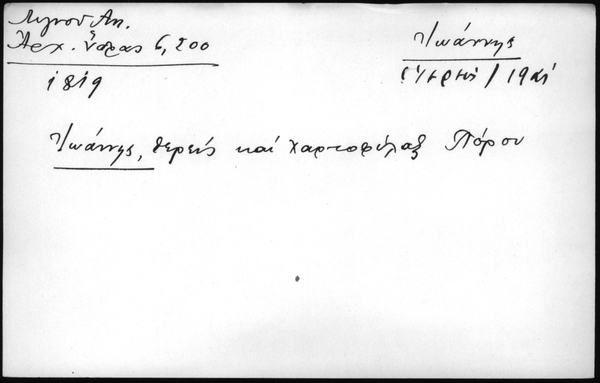 Λιγνοῦ Ἀν.
Ἀρχ. Ὕδρας 6, 200
1819
Ἰωάννης
(ἱερεὺς) 19ος
Ἰωάννης, ἱερεὺς καὶ χαρτοφύλαξ Πόρου